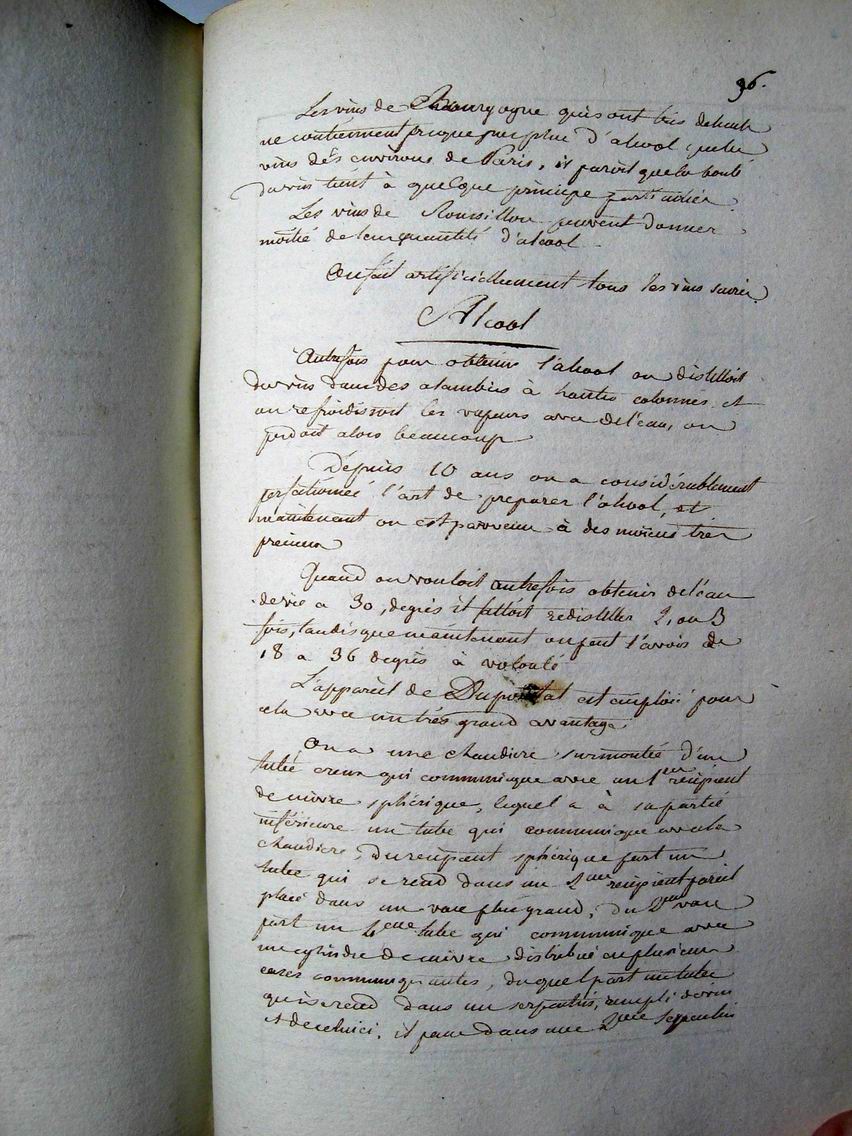 96.
Les vins de Bourgogne qui sont très delicats
ne contiennent presque pas plus d'alcool que les
vins des environs de Paris, il paroit que la bonté
du vin tient à quelque principe particulier.
Les vins de Roussillon peuvent donner
moitié de leur quantité d'alcool
on fait artificiellement tous les vins sucrés
Alcool
Autrefois pour obtenir l'alcool on distilloit
du vin dans des alambics à hautes colonnes et
on refroidissoit les vapeurs avec de l'eau, on
perdoit alors beaucoup
Depuis 10 ans on a considérablement
perfectionné l'art de préparer l'alcool, et
maintenant on est parvenu à des moiens très
precieux
Quand on vouloit autrefois obtenir de l'eau
de vie a 30, degrés il falloit redistiller 2, ou 3
fois, tandis que maintenant on peut l'avoir de
18 a 36 degrés à volonté
L'appareil de est emploié pour
cela avec un très grand avantage.
on a une chaudiere surmontée d'un
tube creux qui communique avec un 1er récipient
de cuivre sphérique, lequel a à sa partie
inférieure un tube qui communique avec la
chaudiere, du recipient sphérique part un
tube qui se rend dans un 2eme récipient pareil
placé dans un vase plus grand, du 2eme vase
part un 4eme tube qui communique avec
un cylindre de cuivre distribué en plusieurs
cases communiquantes, duquel part un tube
qui se rend dans un serpentin, rempli de vin
et de celui ci, il passe dans une 2eme serpentin